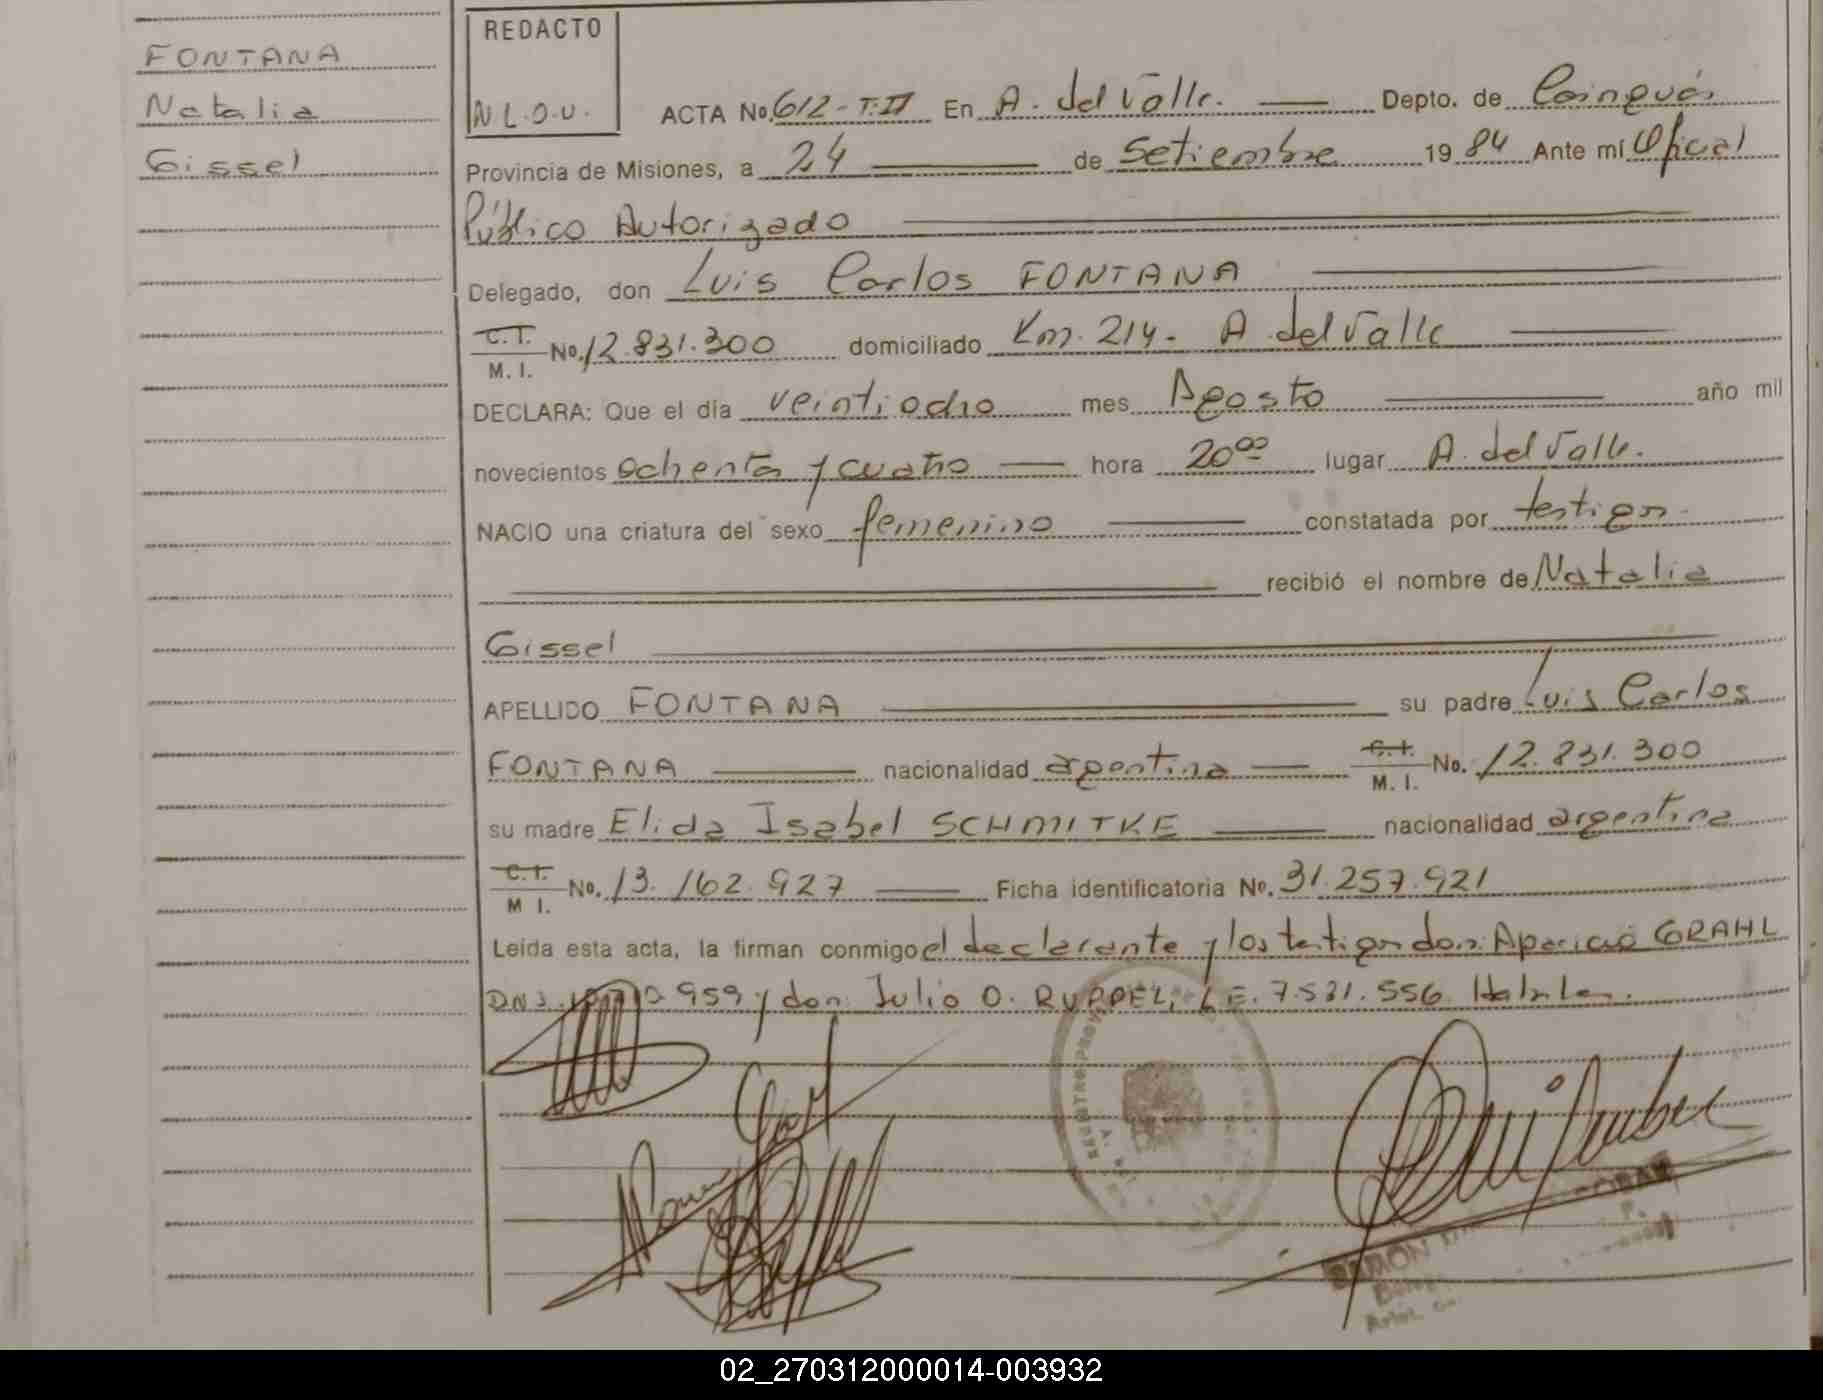 FONTANA
Natalia
Gissel
REDACTO
N L.O.U.
ACTA No. 612 - T. II En A. del Valle. Depto. de Cainguás
Provincia de Misiones, a 24 de Setiembre 19 84 Ante mí Oficial
Público Autorizado
Delegado, don Luis Carlos FONTANA
C. I. M. I. No. 12.831.300 domiciliado Km. 214 - A. del Valle
DECLARA: Que el día veintiocho mes Agosto año mil
novecientos ochenta y cuatro hora 20 00 lugar A. del Valle.
NACIO una criatura del sexo femenino constatada por testigos.
recibió el nombre de Natalia
Gissel
APELLIDO FONTANA su padre Luis Carlos
FONTANA nacionalidad argentina C. I. M. I. No. 12.831.300
su madre Elida Isabel SCHMITKE nacionalidad argentina
C. I. M I. No. 13.162.927 Ficha identificatoria No. 31.257.921
Leída esta acta, la firman conmigo el declarante y los testigos don: Aparicio GRAHL
DNI. 959 y don: Julio O. RUPPEL, L E. 7.531.556
REGISTRO PROV
02_270312000014-003932